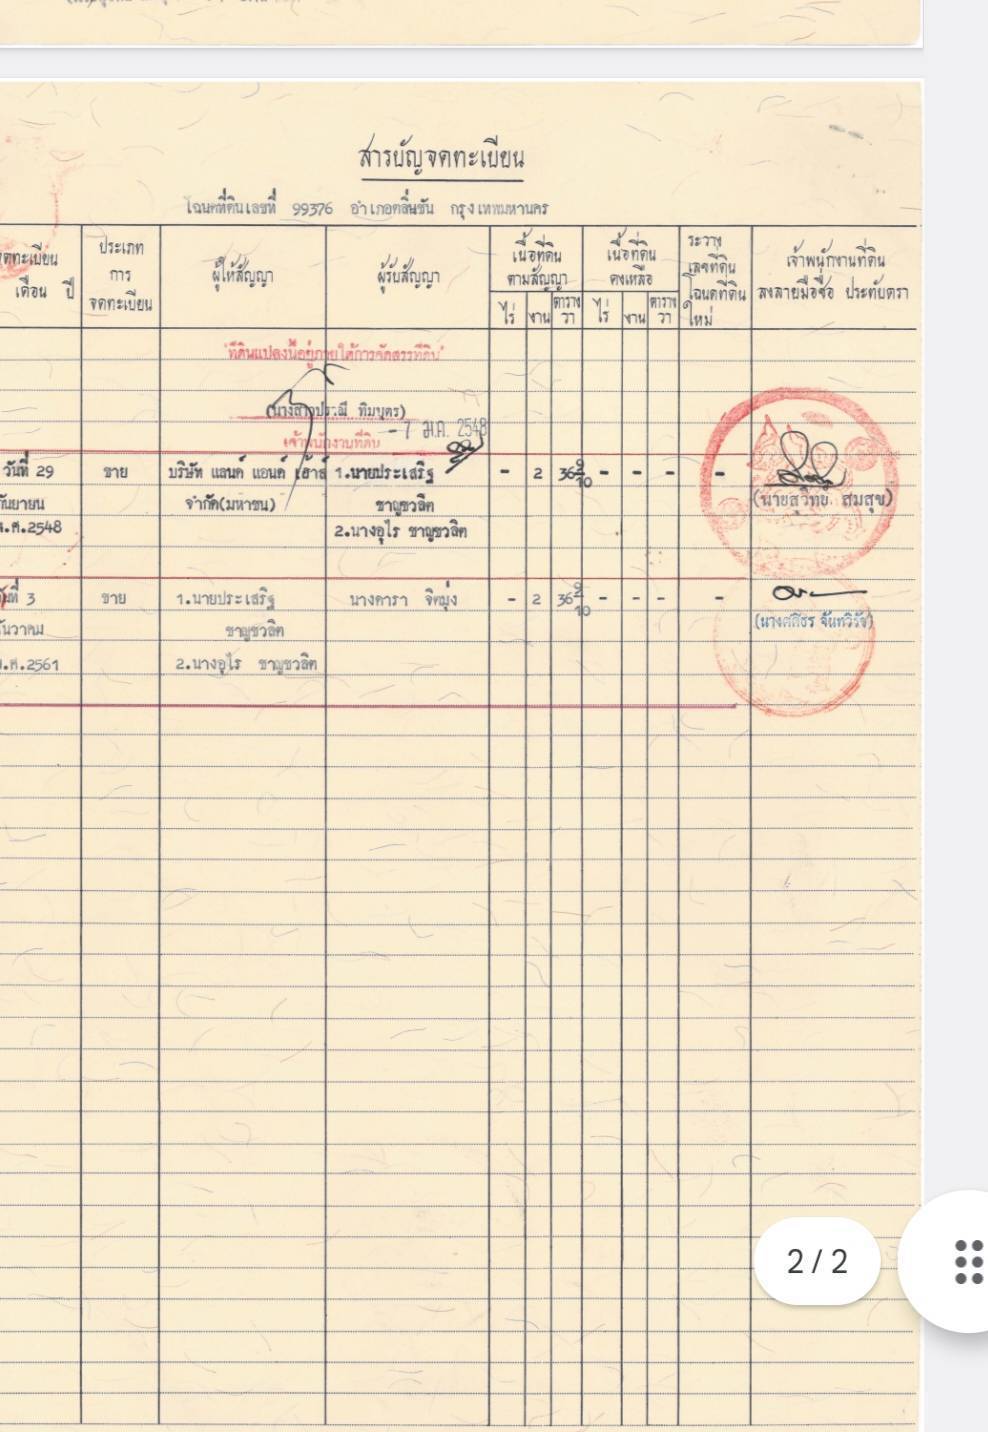 สารบัญจดทะเบียน
โฉนดที่ดินเลขที่ 99376 อำเภอตลิ่งชัน กรุงเทพมหานคร
จดทะเบียน
เดือน ปี
ประเภท
การ
จดทะเบียน
ผู้ให้สัญญา
ผู้รับสัญญา
เนื้อที่ดิน
ตามสัญญา
ไร่ งาน ตารางวา
เนื้อที่ดิน
คงเหลือ
ไร่ งาน ตารางวา
ระวาง
เลขที่ดิน
โฉนดที่ดิน
ใหม่
เจ้าพนักงานที่ดิน
ลงลายมือชื่อ ประทับตรา
"ที่ดินแปลงนี้อยู่ภายใต้การจัดสรรที่ดิน"
(นางสาวปราณี ทิมบุตร)
- 7 ม.ค. 2548
เจ้าพนักงานที่ดิน
วันที่ 29 ขาย บริษัท แลนด์ แอนด์ เฮ้าส์ 1.นายประเสริฐ - 2 36 9/10 - - - -
กันยายน จำกัด(มหาชน) ชาญชวลิต (นายสุวิทย์ สมสุข)
พ.ศ.2548 2.นางอุไร ชาญชวลิต
วันที่ 3 ขาย 1.นายประเสริฐ นางดารา จิตมุ่ง - 2 36 9/10 - - - -
ธันวาคม ชาญชวลิต (นางศศิธร จันทวิรัช)
พ.ศ.2561 2.นางอุไร ชาญชวลิต
2 / 2